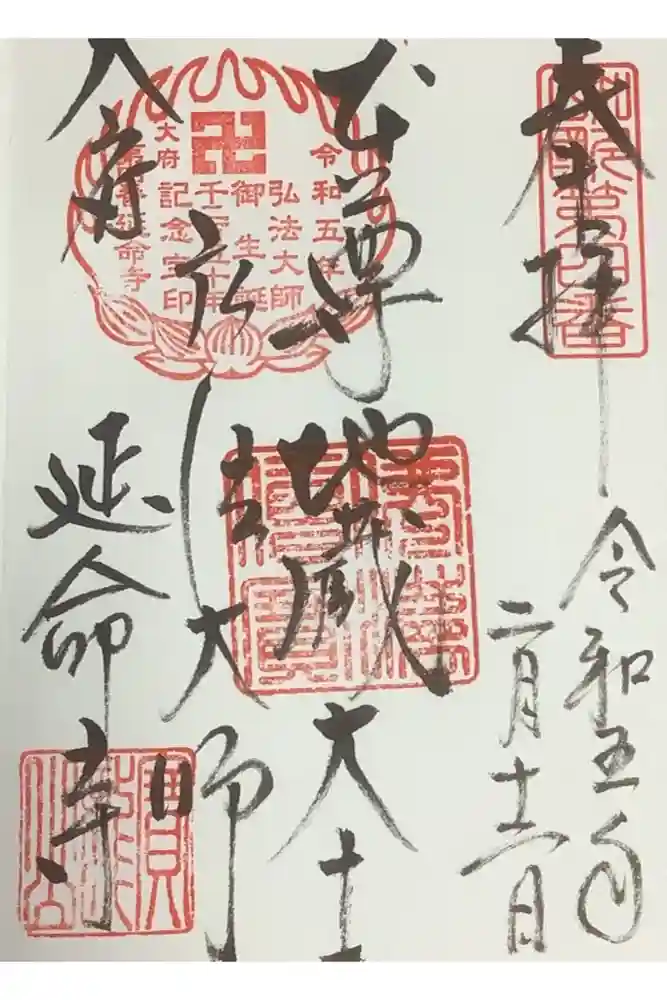 奉拝
令和五年
二月十二日
本尊
地蔵大士
弘法大師
大府
延命寺
令和五年
弘法大師
御生誕
千二百五十年
記念宝印
大府
延命寺
第四番